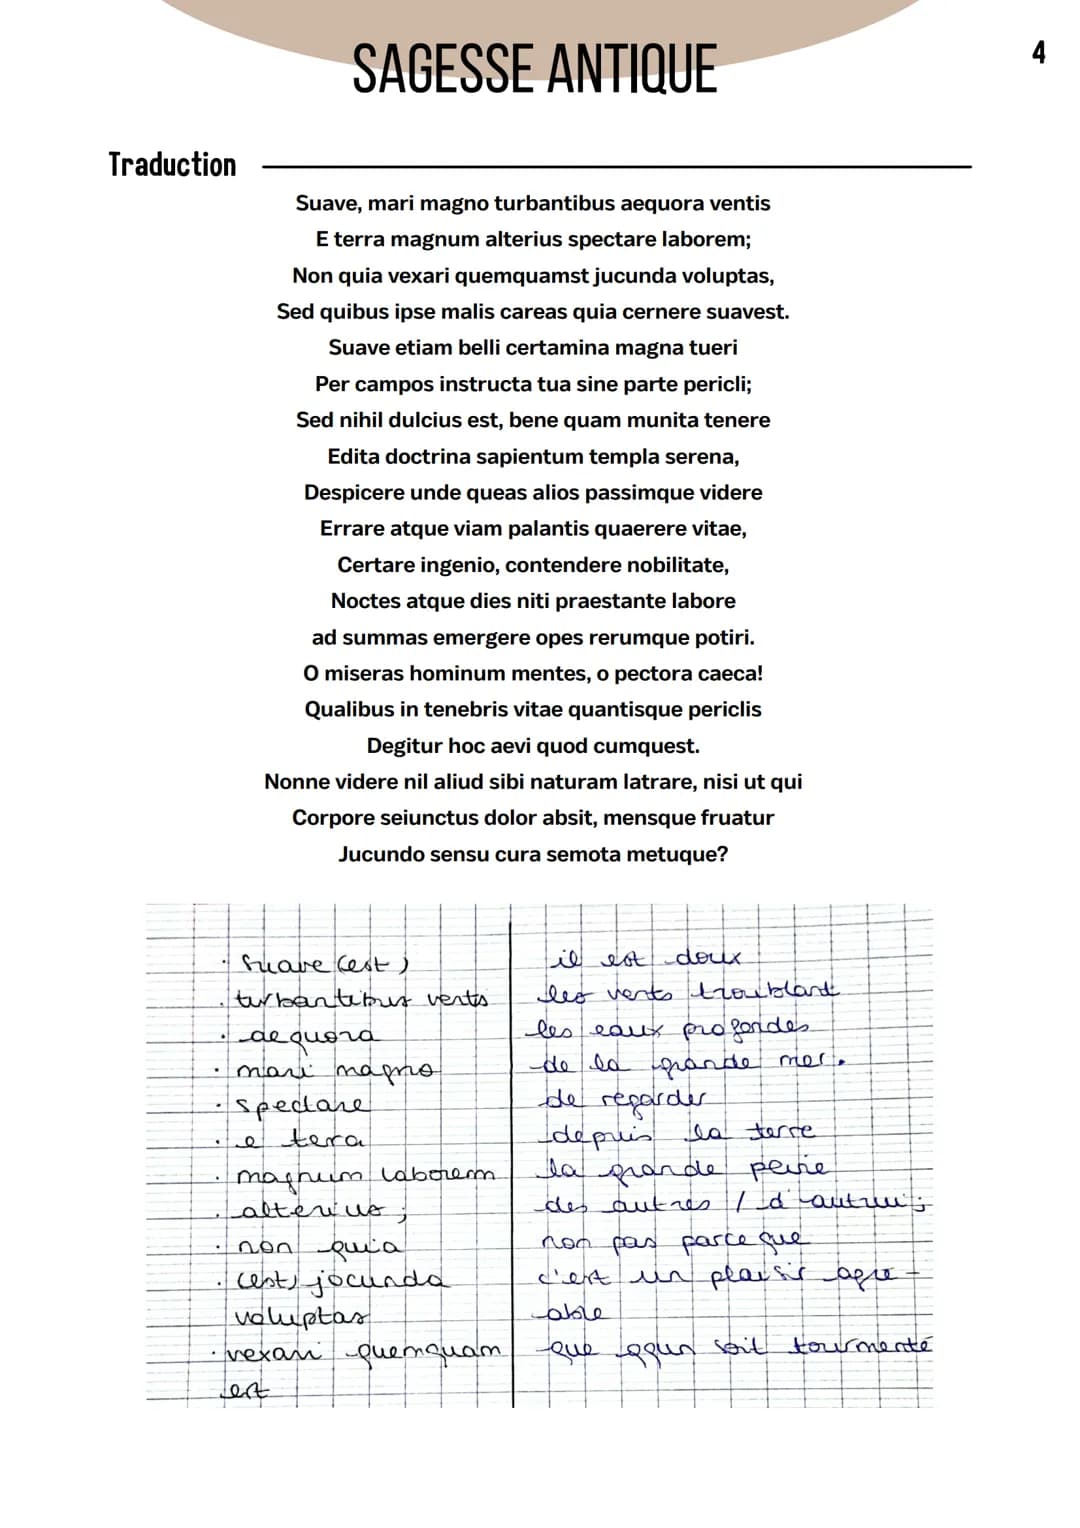 SAGESSE ANTIQUE
4
Traduction
Suave, mari magno turbantibus aequora ventis
E terra magnum alterius spectare laborem;
Non quia vexari quemquamst jucunda voluptas,
Sed quibus ipse malis careas quia cernere suavest.
Suave etiam belli certamina magna tueri
Per campos instructa tua sine parte pericli;
Sed nihil dulcius est, bene quam munita tenere
Edita doctrina sapientum templa serena,
Despicere unde queas alios passimque videre
Errare atque viam palantis quaerere vitae,
Certare ingenio, contendere nobilitate,
Noctes atque dies niti praestante labore
ad summas emergere opes rerumque potiri.
O miseras hominum mentes, o pectora caeca!
Qualibus in tenebris vitae quantisque periclis
Degitur hoc aevi quod cumquest.
Nonne videre nil aliud sibi naturam latrare, nisi ut qui
Corpore seiunctus dolor absit, mensque fruatur
Jucundo sensu cura semota metuque?
· Suave (est) il est doux
· turbantibus ventis les vents troublant
· aequora les eaux profondes
· mari magno de la grande mer.
· spectare de regarder
· e tera depuis la terre
· magnum laborem la grande peine
· alterius ; des autres / d'autrui ;
· non quia non pas parce que
· (est) jocunda c'est un plaisir agré-
voluptas able
· vexari quemquam que qqun soit tourmenté
est